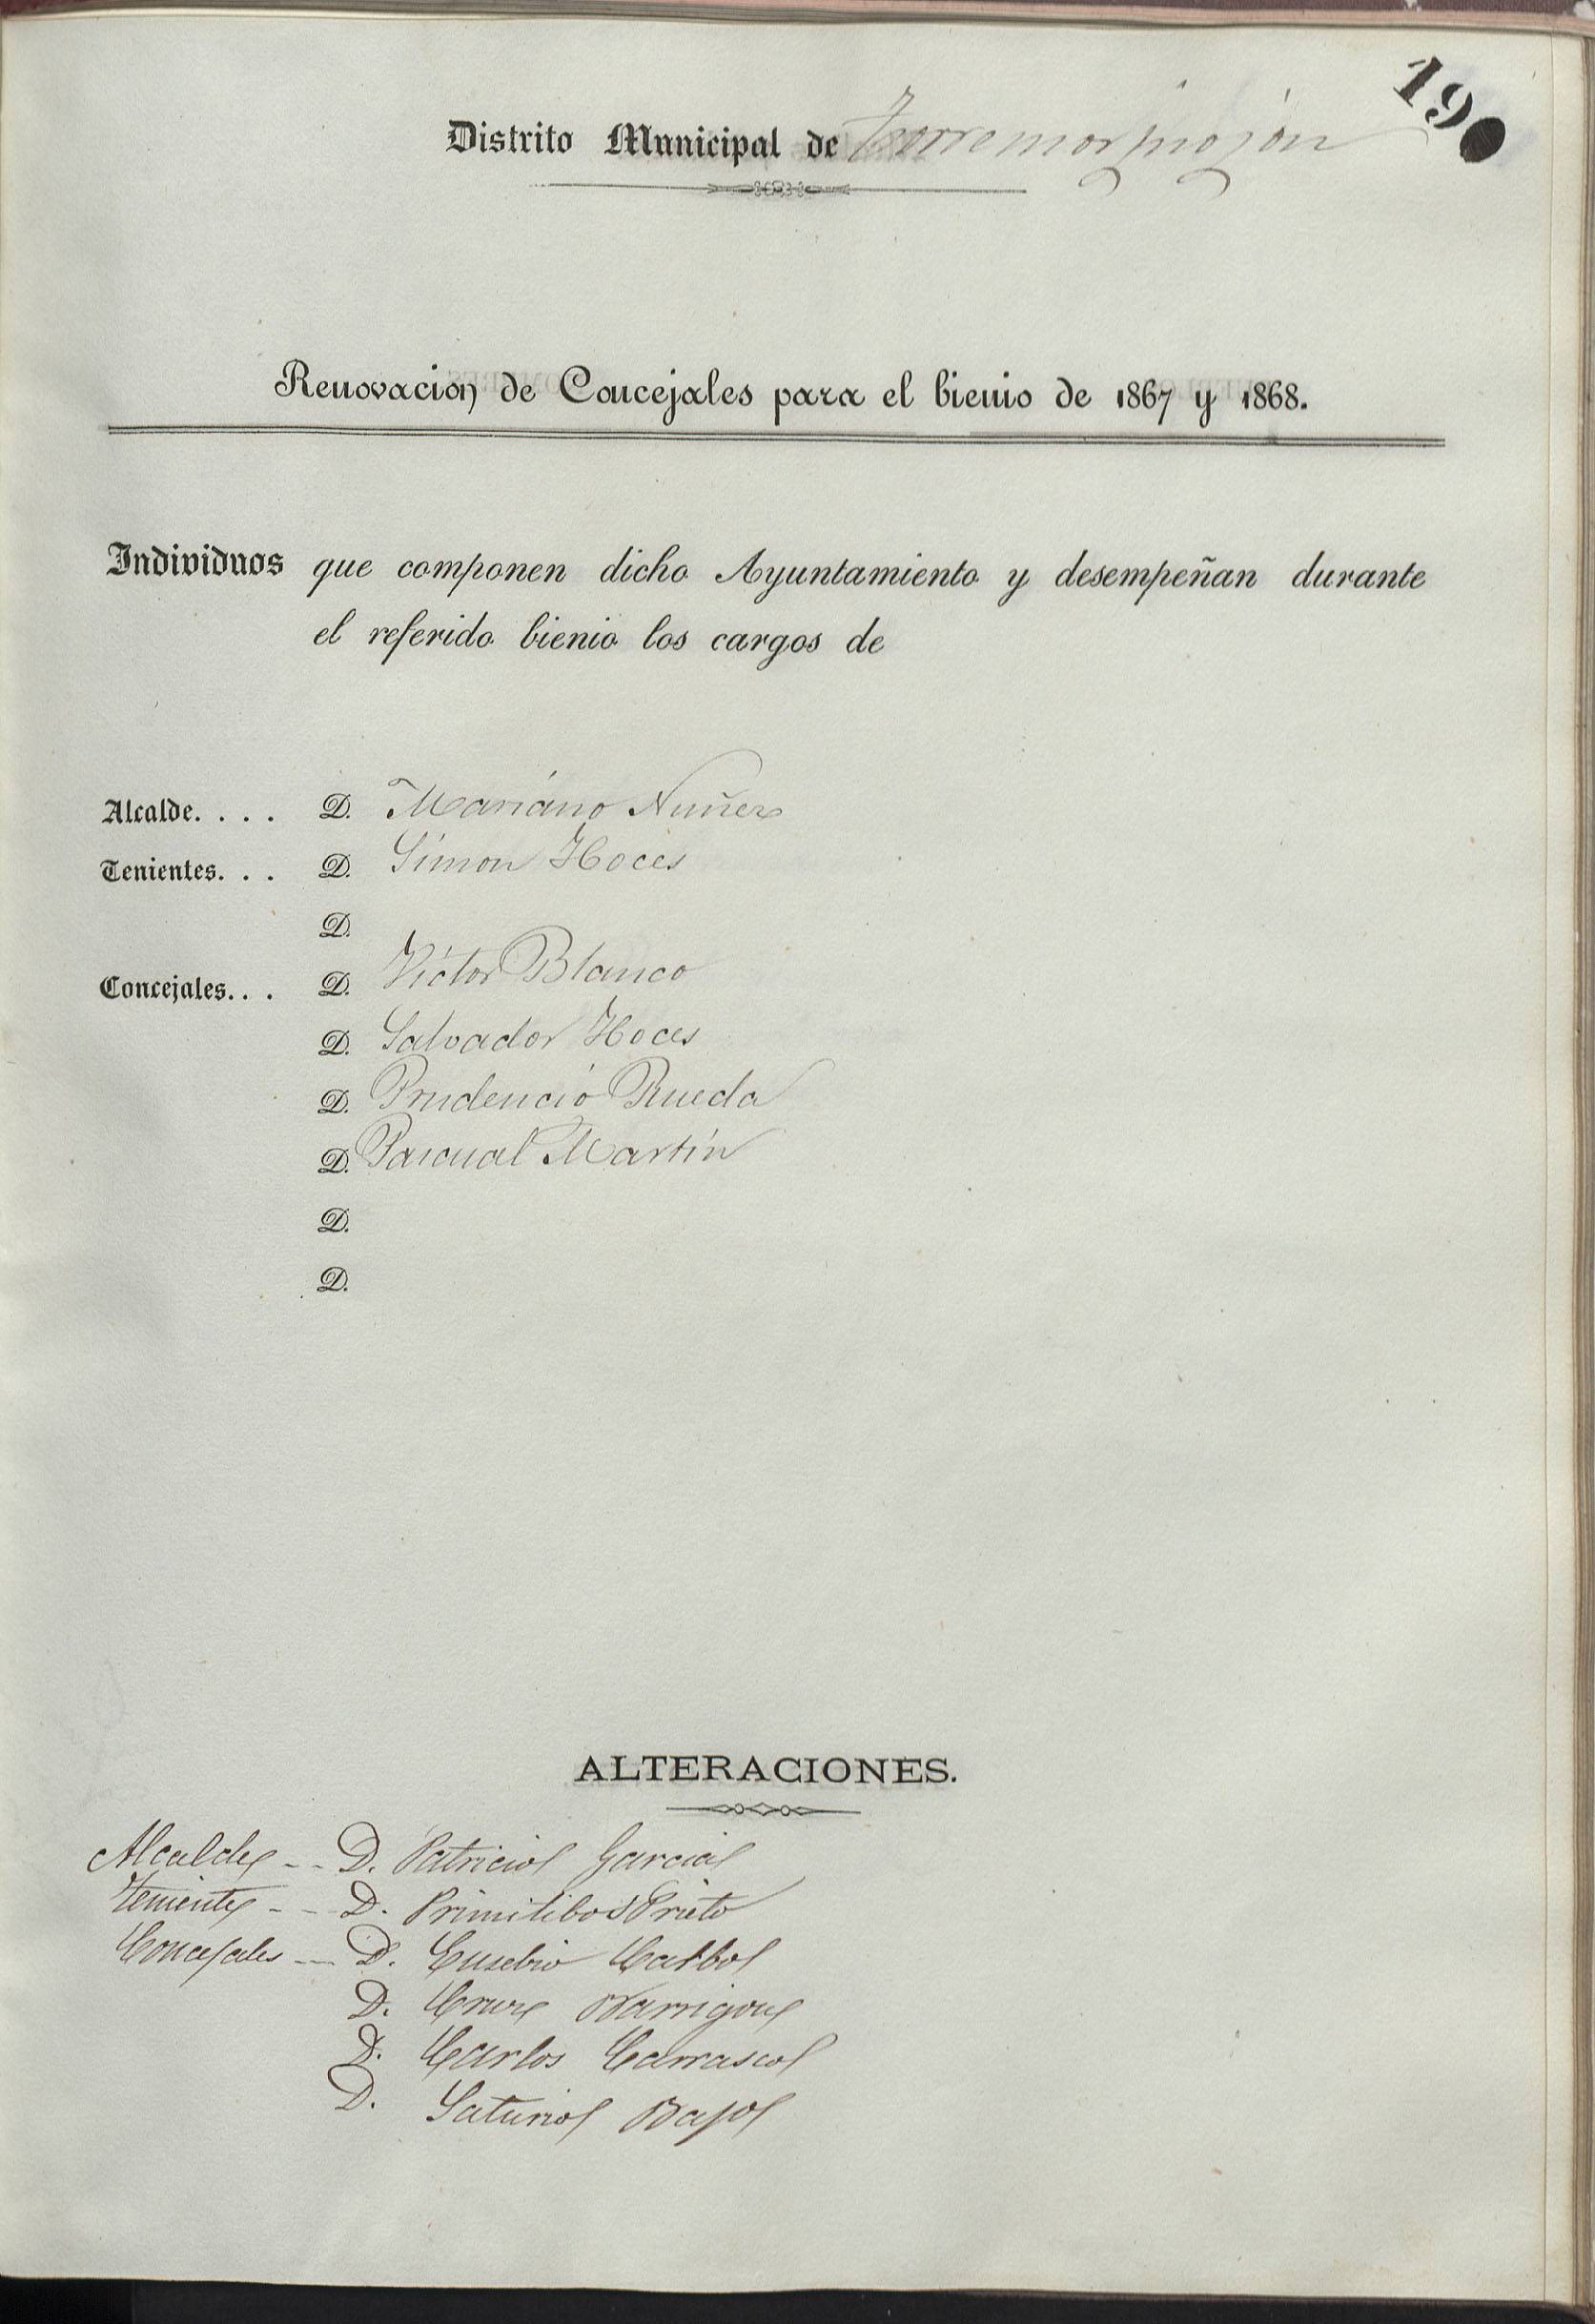 190
Distrito Municipal de Torremormojón
Renovacion de Concejales para el bienio de 1867 y 1868.
Individuos que componen dicho Ayuntamiento y desempeñan durante
el referido bienio los cargos de
Alcalde. . . . D. Mariano Nuñez
Tenientes. . . D. Simon Hoces
D.
Concejales. . . D. Víctor Blanco
D. Salvador Hoces
D. Prudencio Rueda
D. Pascual Martín
D.
D.
ALTERACIONES.
Alcalde -- D. Patricio Garcia
Teniente -- D. Primitibo Prieto
Concejales -- D. Eusebio
D. Cruz Barrigon
D. Carlos Carrasco
D. Saturio Bajo